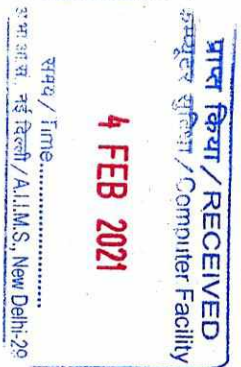 प्राप्त किया / RECEIVED
कम्प्यूटर सुविधा / Computer Facility
4 FEB 2021
समय / Time....................
अ.भा.आ.सं. नई दिल्ली / A.I.I.M.S., New Delhi-29